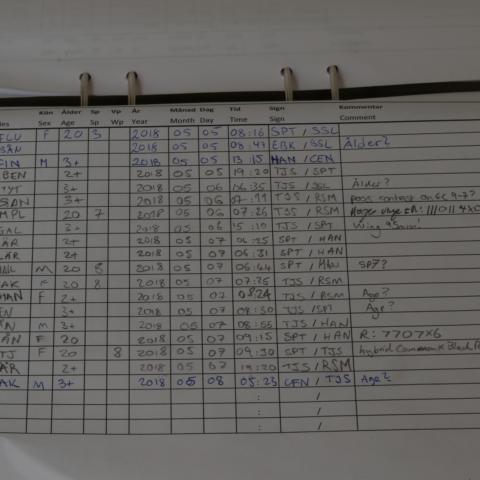 Kön Ålder Sp Vp År Månad Dag Tid Sign Kommentar
Sex Age Sp Wp Year Month Day Time Sign Comment
F 20 3 2018 05 05 08:16 SPT / SSL
2018 05 05 08:47 ERK / SSL Ålder?
FIN M 3+ 2018 05 05 13:15 HAN / CEN
BEN 2+ 2018 05 05 19:20 TJS / SPT
3+ 2018 05 06 06:35 TJS / SSL Ålder?
SAN 3+ 2018 05 06 TJS / RSM
MPL 20 7 2018 05 06 07:26 TJS / RSM
GAL 3+ 2018 05 06 15:10 TJS / STY Wing 95mm!
LÄR 2+ 2018 05 07 06:25 SPT / HAN
LÄR 2+ 2018 05 07 06:31 SPT / HAN
M 20 8 2018 05 07 06:44 SPT / SP7?
AK F 20 8 2018 05 07 07:25 TJS / RSM
HAN F 2+ 2018 05 07 08:24 TJS / RSM Age?
EN 3+ 2018 05 07 08:30 TJS / SPT Age?
ÅN M 3+ 2018 05 07 08:55 TJS / HAN
RÅN F 20 2018 05 07 09:15 SPT / HAN R: 7707X6
TJ F 20 8 2018 05 07 09:30 SPT / TJS hybrid Common x
ÄR 2+ 2018 05 07 19:20 TJS / RSM
AK M 3+ 2018 05 08 05:23 CEN / TJS Age?
: /
: /
: /